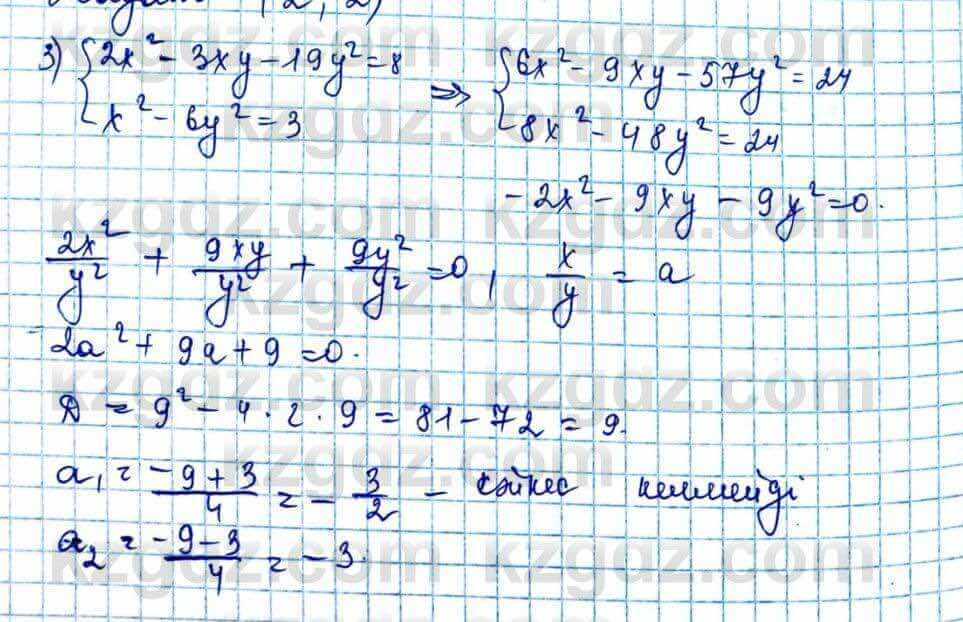 3) { 2x² - 3xy - 19y² = 8 ⇒ { 6x² - 9xy - 57y² = 24
x² - 6y² = 3 8x² - 48y² = 24
- 2x² - 9xy - 9y² = 0.
2x²/y² + 9xy/y² + 9y²/y² = 0, x/y = a
2a² + 9a + 9 = 0.
D = 9² - 4 · 2 · 9 = 81 - 72 = 9.
a₁ = -9+3/4 = - 3/2 - сәйкес келмейді
a₂ = -9-3/4 = -3.
kzgdz.com